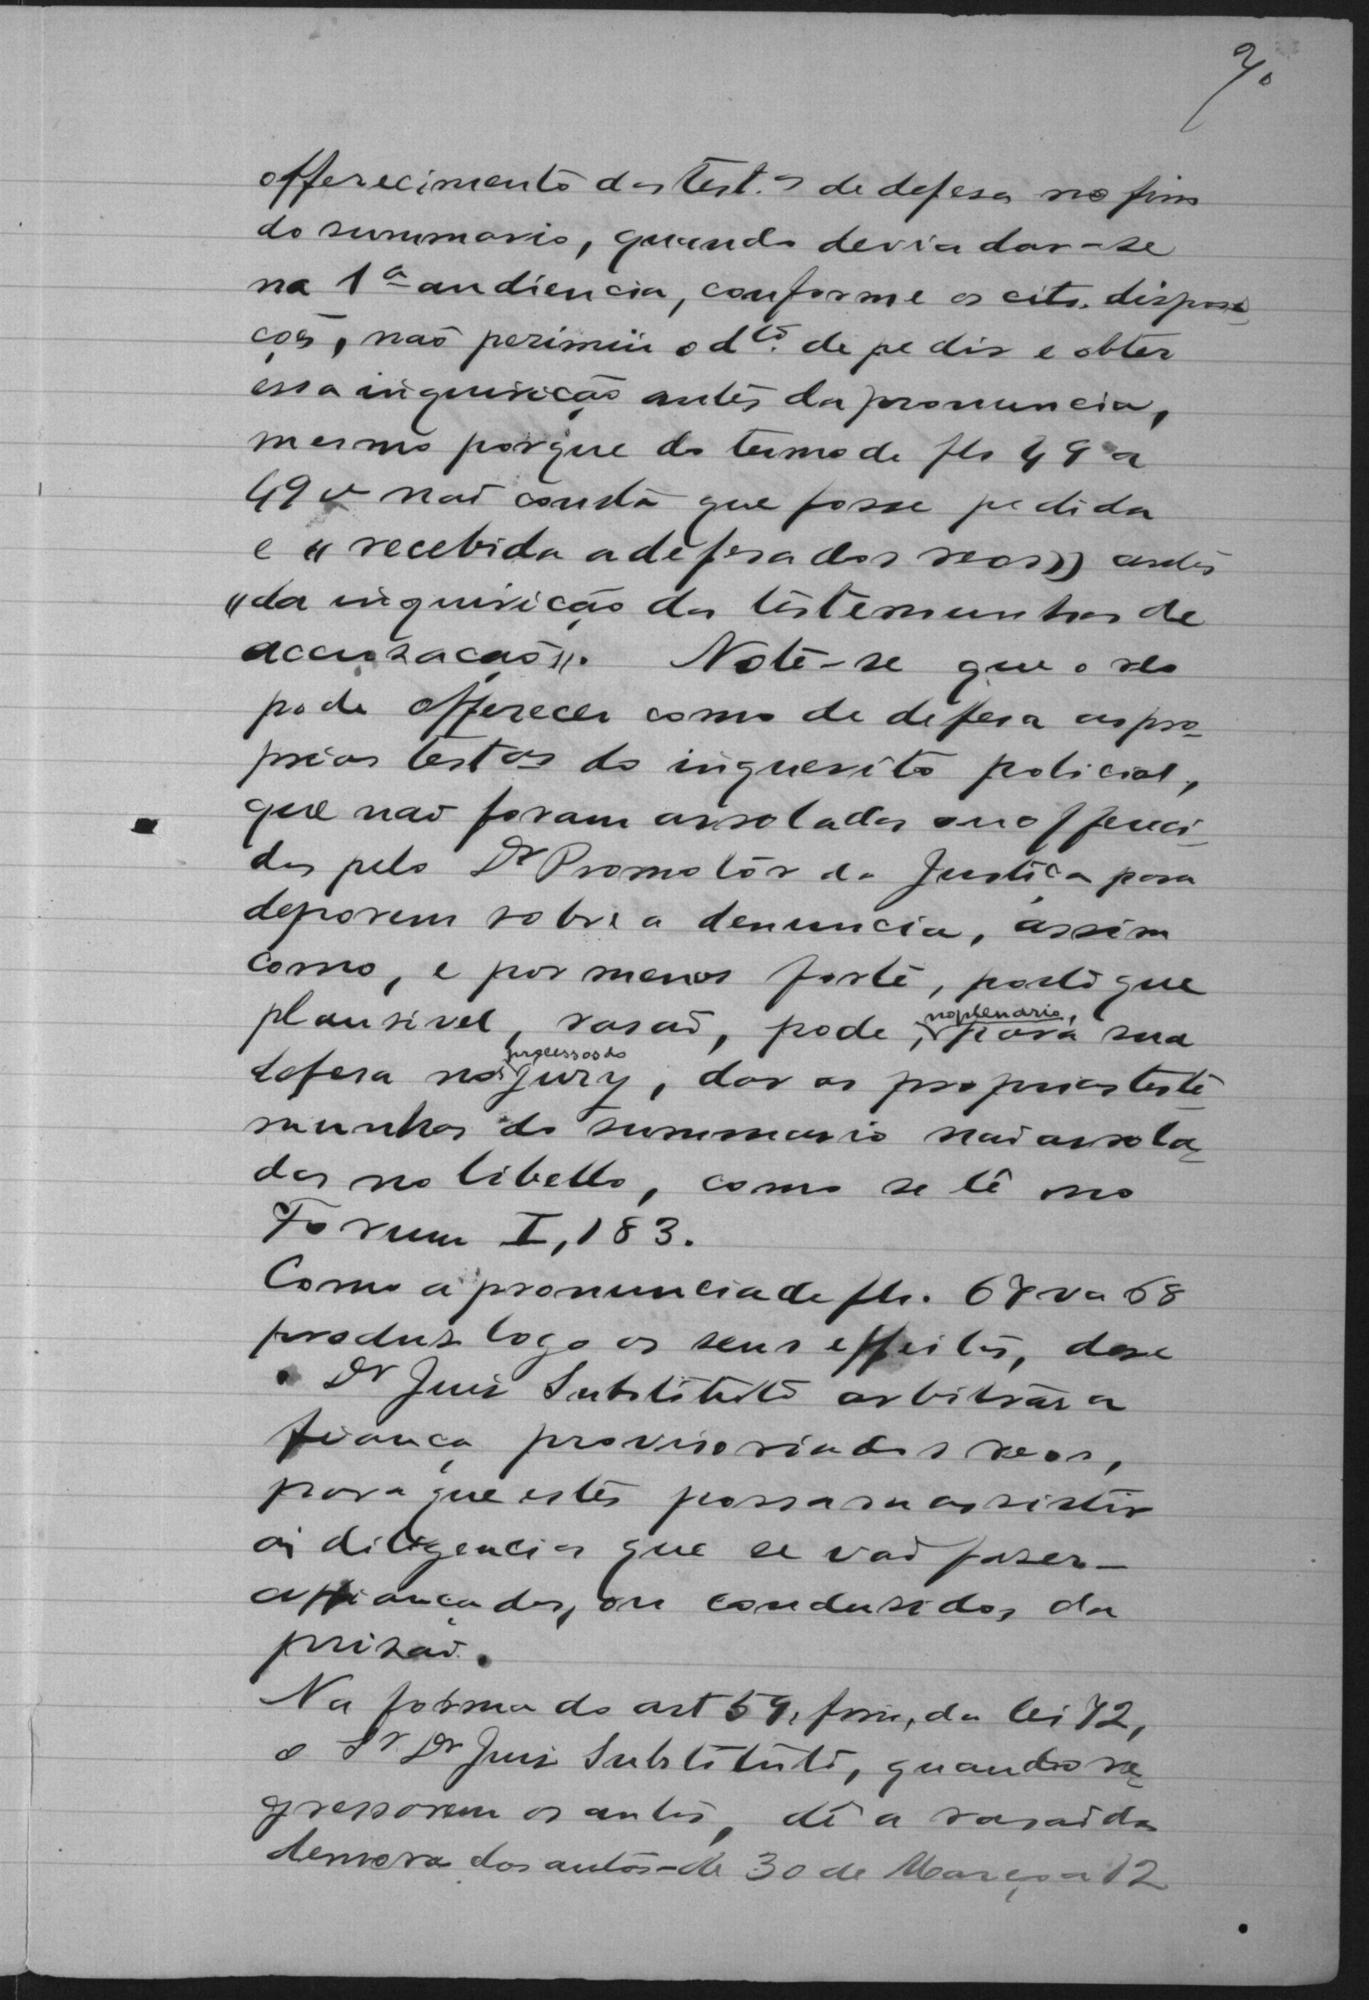 70
offerecimento das test.as de defesa no fim
do summario, quando devia dar-se
na 1ª audiencia, conforme as cits. disposi-
ções, não perimiu o dto. de pedir e obter
essa inquirição antes da pronuncia,
mesmo porque do termo de fls 49 a
49 v não consta que fosse pedida
e "recebida a defesa dos reos)) antes
"da inquirição das testemunhas de
accusação". Note-se que o réo
pode offerecer como de defesa as pro-
prias testas do inquerito policial,
que não foram arroladas ou offereci-
das pelo Dr Promotor da Justiça para
deporem sobre a denuncia, assim
como, e por menos forte, posto que
plausivel, rasão, pode, no plenario, para sua
defesa no processo do jury, dar as proprias teste
munhas do summario não arrola-
das no libello, como se lê no
Forum I, 183.
Como a pronuncia de fls. 67 v a 68
produz logo os seus effeitos, deve
o Dr Juiz Substituto arbitrar a
fiança provisoria dos reos,
para que estes possam assistir
ás diligencias que se vão faser-
affiançados, ou condusidos da
prisão.
Na forma do art 59, fim, da lei 72,
o Sr. Dr Juiz Substituto, quando re-
gressarem os autos, dê a rasão da
demora dos autos-de 30 de Março a 12